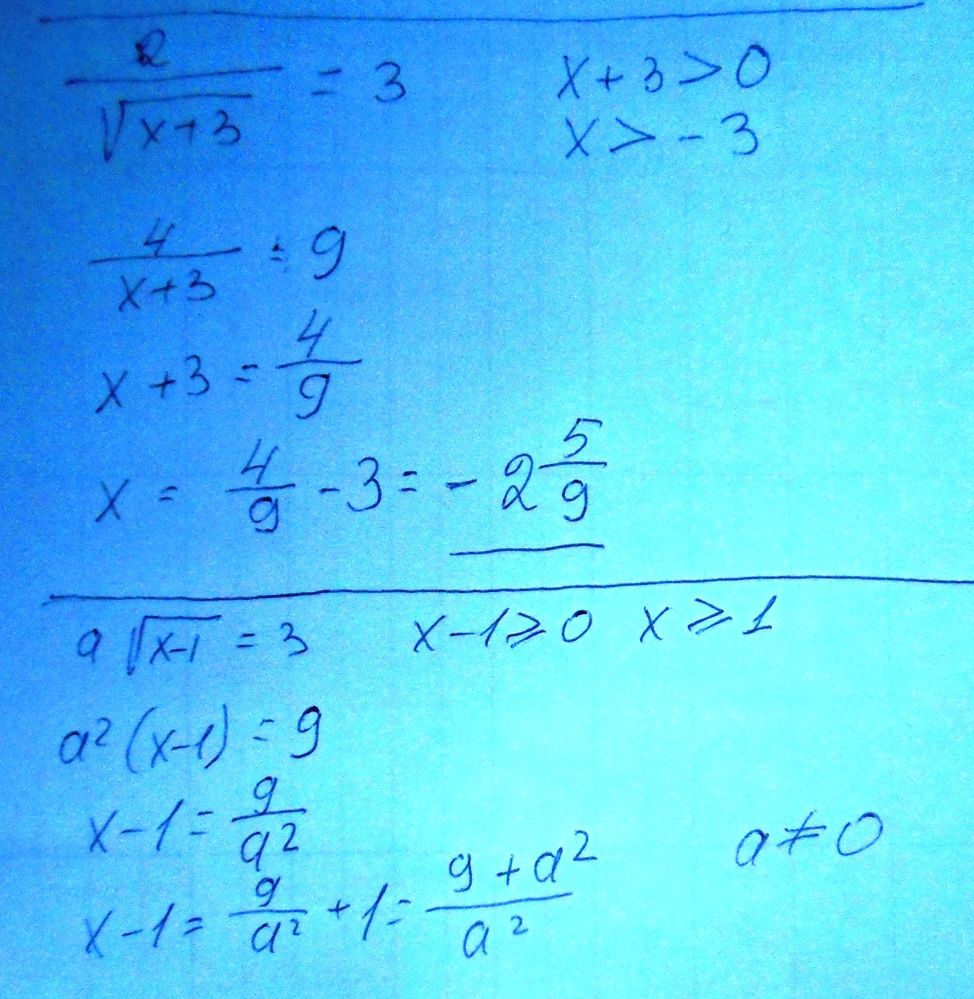 2/√(x+3) = 3 x+3>0
x>-3
4/(x+3) = 9
x+3 = 4/9
x = 4/9 - 3 = - 2 5/9
a √(x-1) = 3 x-1⩾0 x⩾1
a²(x-1) = 9
x-1 = 9/a² a≠0
x-1 = 9/a² + 1 = (9+a²)/a²